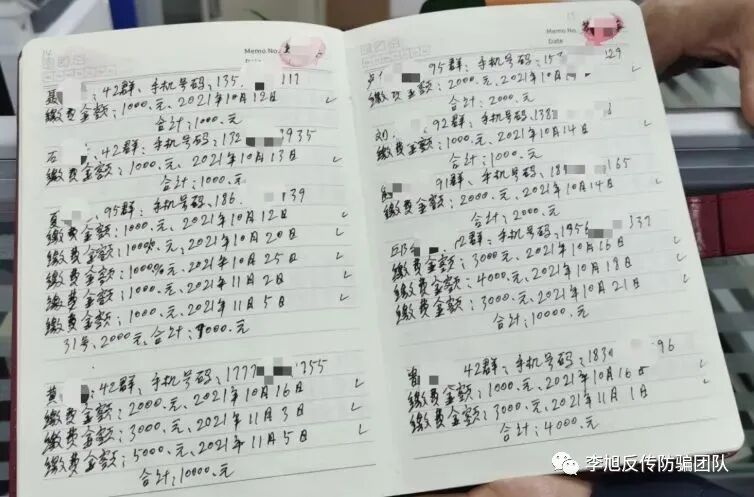 14
Memo No.
Date
聂 :42群:手机号码:135 117
缴费金额:1000.元、2021年10月12日
合计:1000.元
石 :42群:手机号码:132 3935
缴费金额:1000.元、2021年10月13日
合计:1000.元
夏 :95群:手机号码:186. 139
缴费金额:1000.元、2021年10月12日
缴费金额:1000.元、2021年10月20日
缴费金额:1000.元、2021年10月25日
缴费金额:1000.元、2021年11月2日
缴费金额:1000.元、2021年11月5日
31号、2000元、合计:7000.元
黄 :42群:手机号码:1777 755
缴费金额:2000.元、2021年10月16日
缴费金额:3000.元、2021年11月3日
缴费金额:5000.元、2021年11月5日
合计:10000.元
Memo No.
Date
卢 95群:手机号码:15 129
缴费金额:2000.元、2021年10月
合计:2000.元
刘 92群:手机号码:138
缴费金额:1000.元、2021年10月14日
合计:1000.元
91群:手机号码:18 165
缴费金额:2000.元、2021年10月14日
合计:2000.元
邱 2群:手机号码:1956 337
缴费金额:3000.元、2021年10月16日
缴费金额:4000.元、2021年10月19日
缴费金额:3000.元、2021年10月21日
合计:10000.元
曾 42群:手机号码:183 96
缴费金额:1000.元、2021年10月16日
缴费金额:3000.元、2021年11月1日
合计:4000.元
李旭反传防骗团队